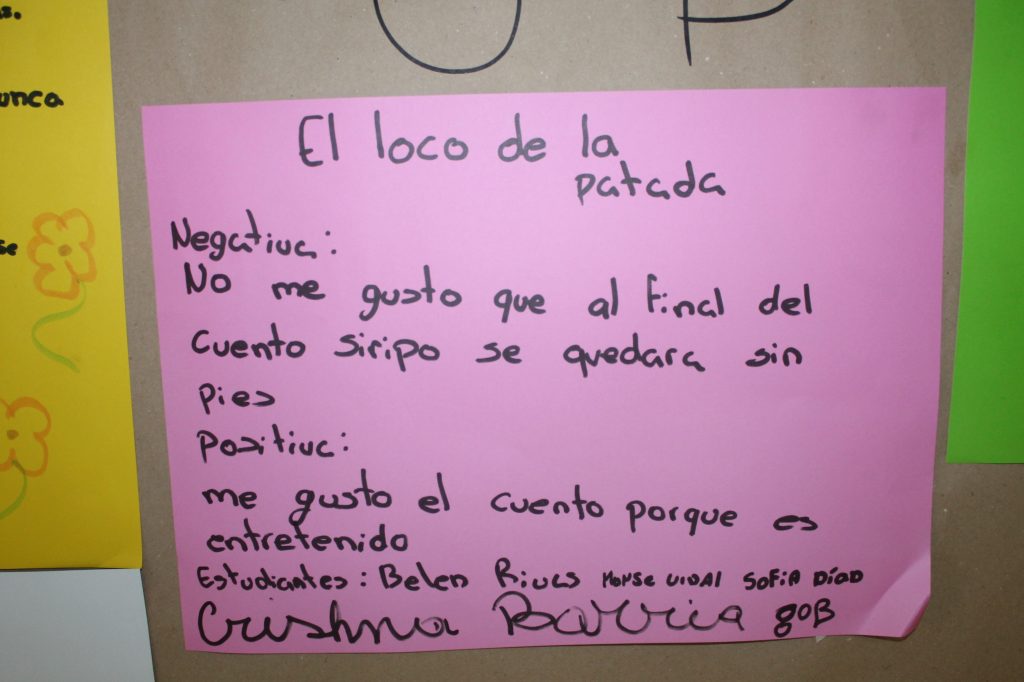 unca
se
El loco de la
patada
Negativa:
No me gusto que al final del
cuento siripo se quedara sin
pies
Positiva:
me gusto el cuento porque es
entretenido
Estudiantes: Belen Rivas Monse Vidal Sofia
Cristina Barria 8ºB